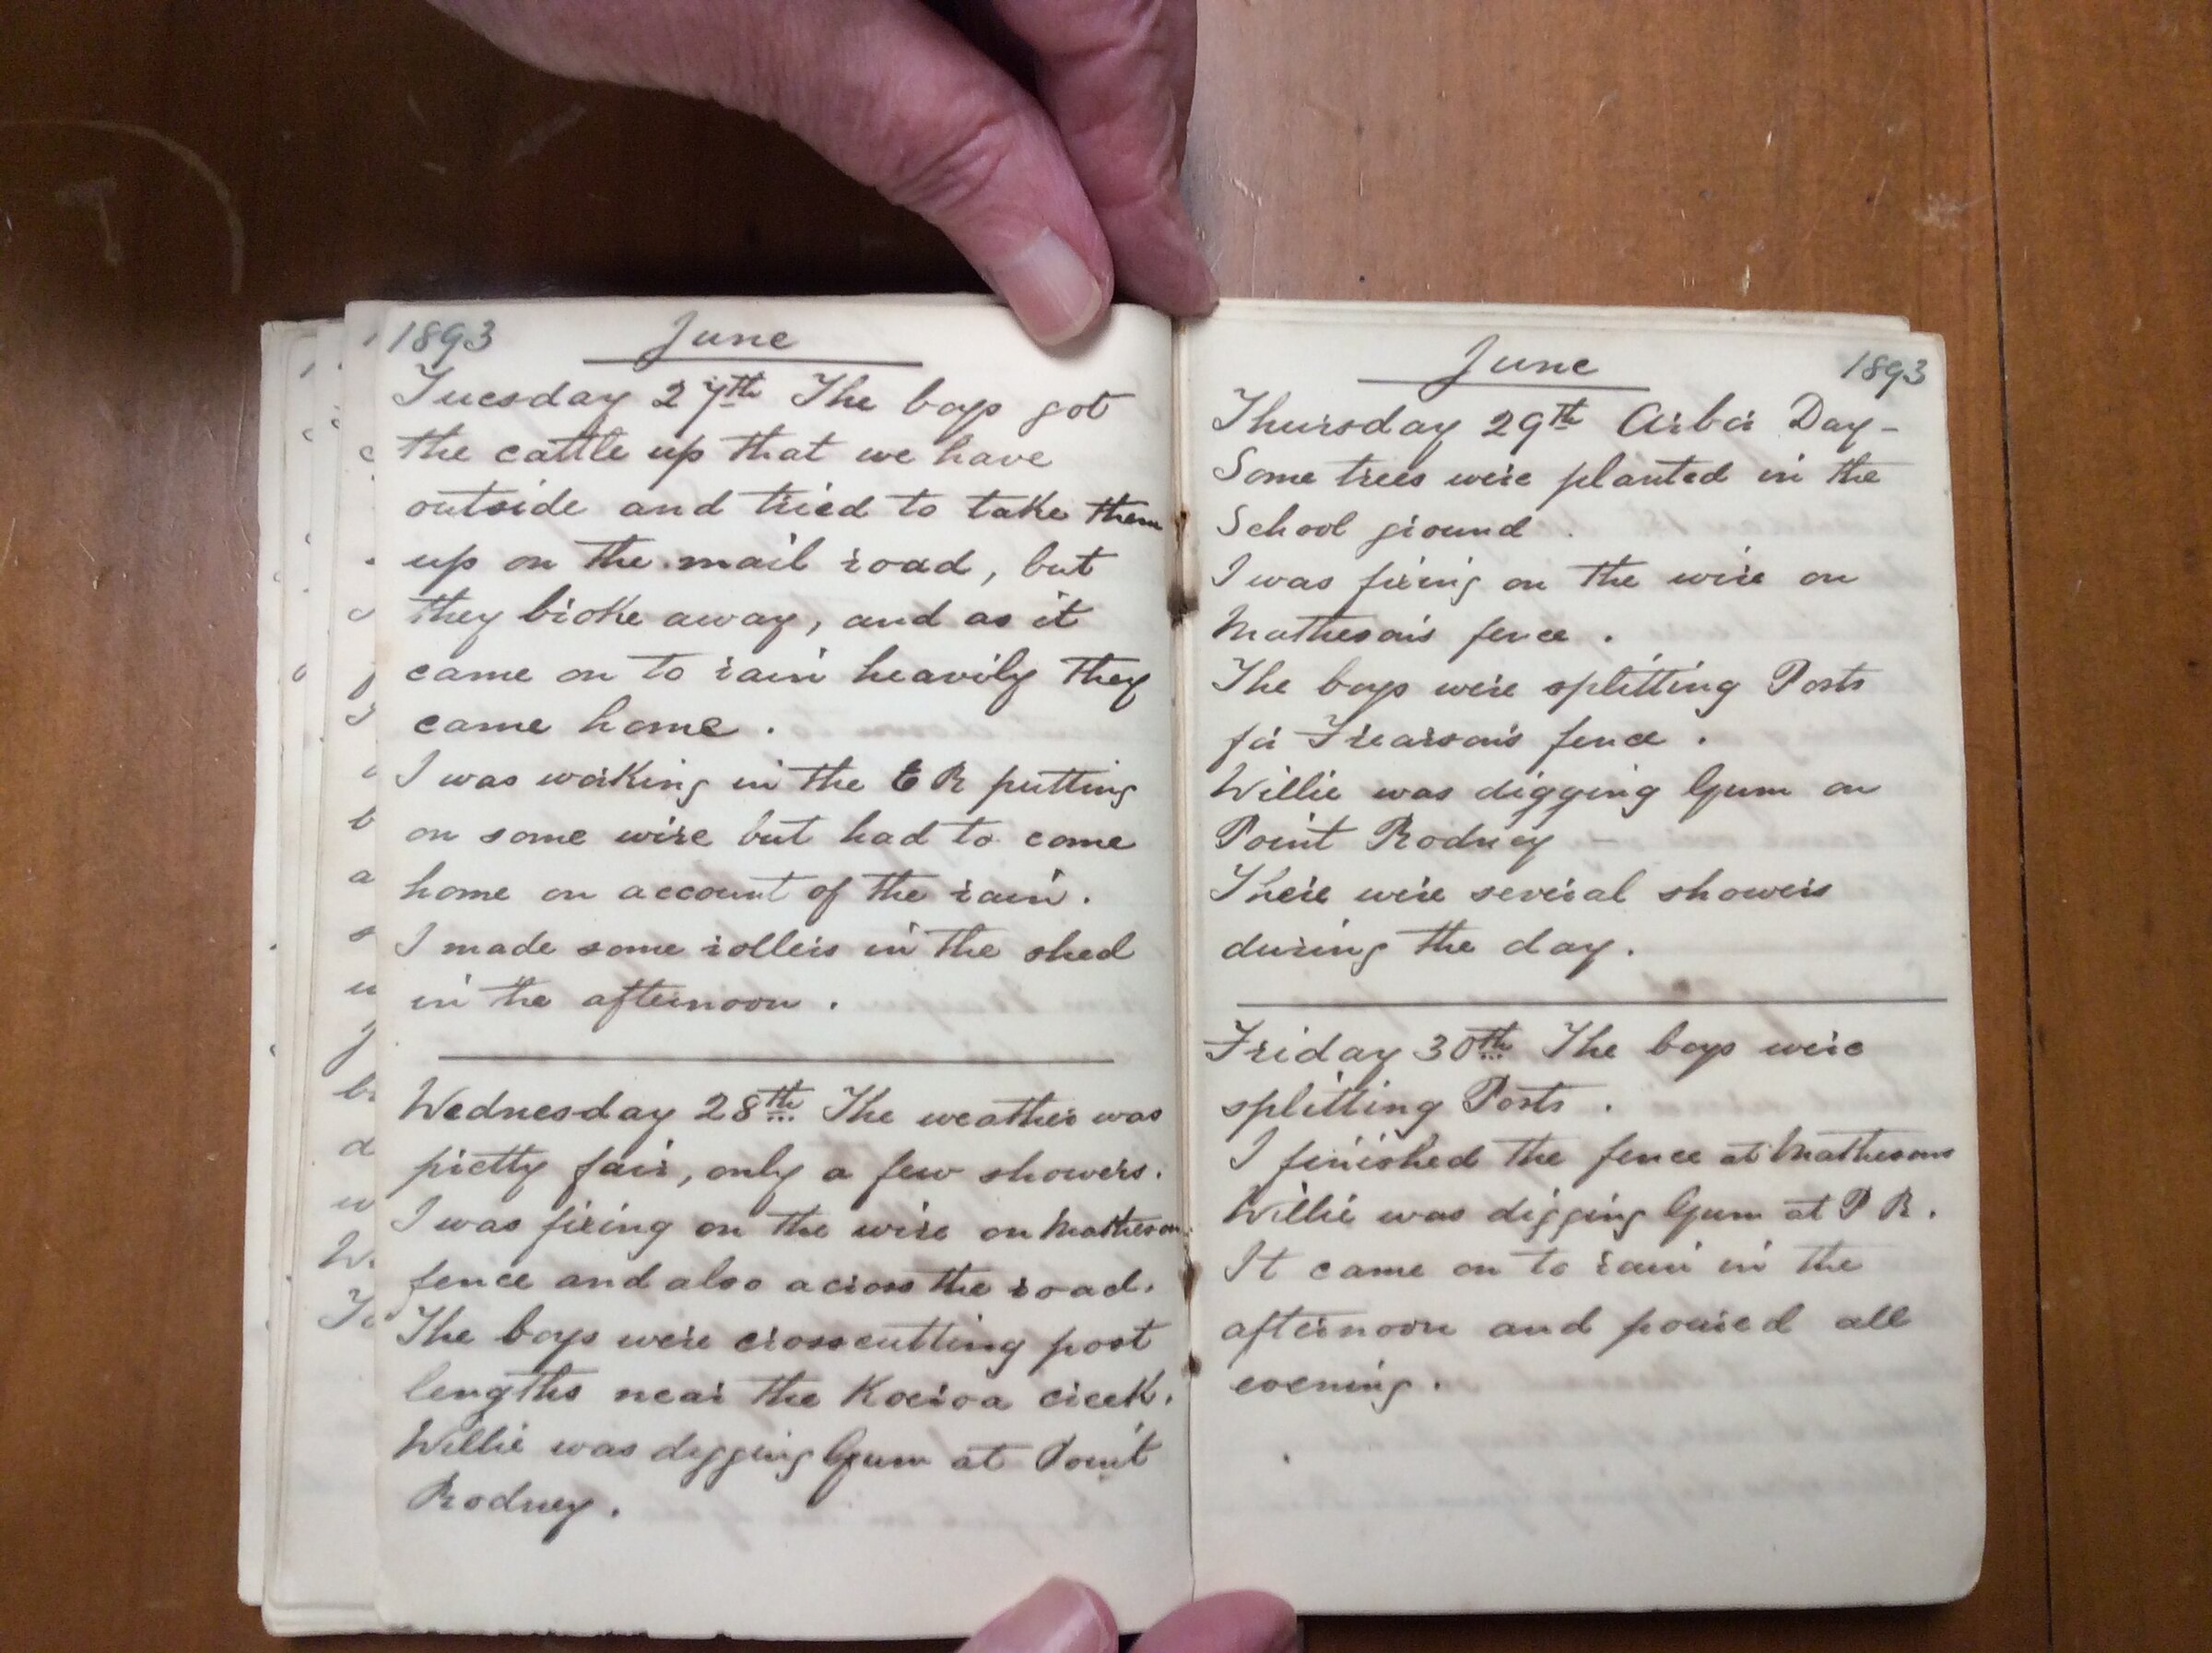 1893 June
Tuesday 27th The boys got
the cattle up that we have
outside and tried to take them
up on the mail road, but
they broke away, and as it
came on to rain heavily they
came home.
I was working in the E R putting
on some wire but had to come
home on account of the rain.
I made some rollers in the shed
in the afternoon.
Wednesday 28th The weather was
pretty fair, only a few showers.
I was fixing on the wire on Matheson
fence and also across the road.
The boys were crosscutting post
lengths near the Koeroa creek.
Willie was digging Gum at Point
Rodney.
June 1893
Thursday 29th Arbor Day-
Some trees were planted in the
School ground.
I was fixing on the wire on
Matheson's fence.
The boys were splitting Posts
for Frearson's fence.
Willie was digging Gum on
Point Rodney -
There were several showers
during the day.
Friday 30th The boys were
splitting Posts.
I finished the fence at Mathesons
Willie was digging Gum at P R.
It came on to rain in the
afternoon and poured all
evening.